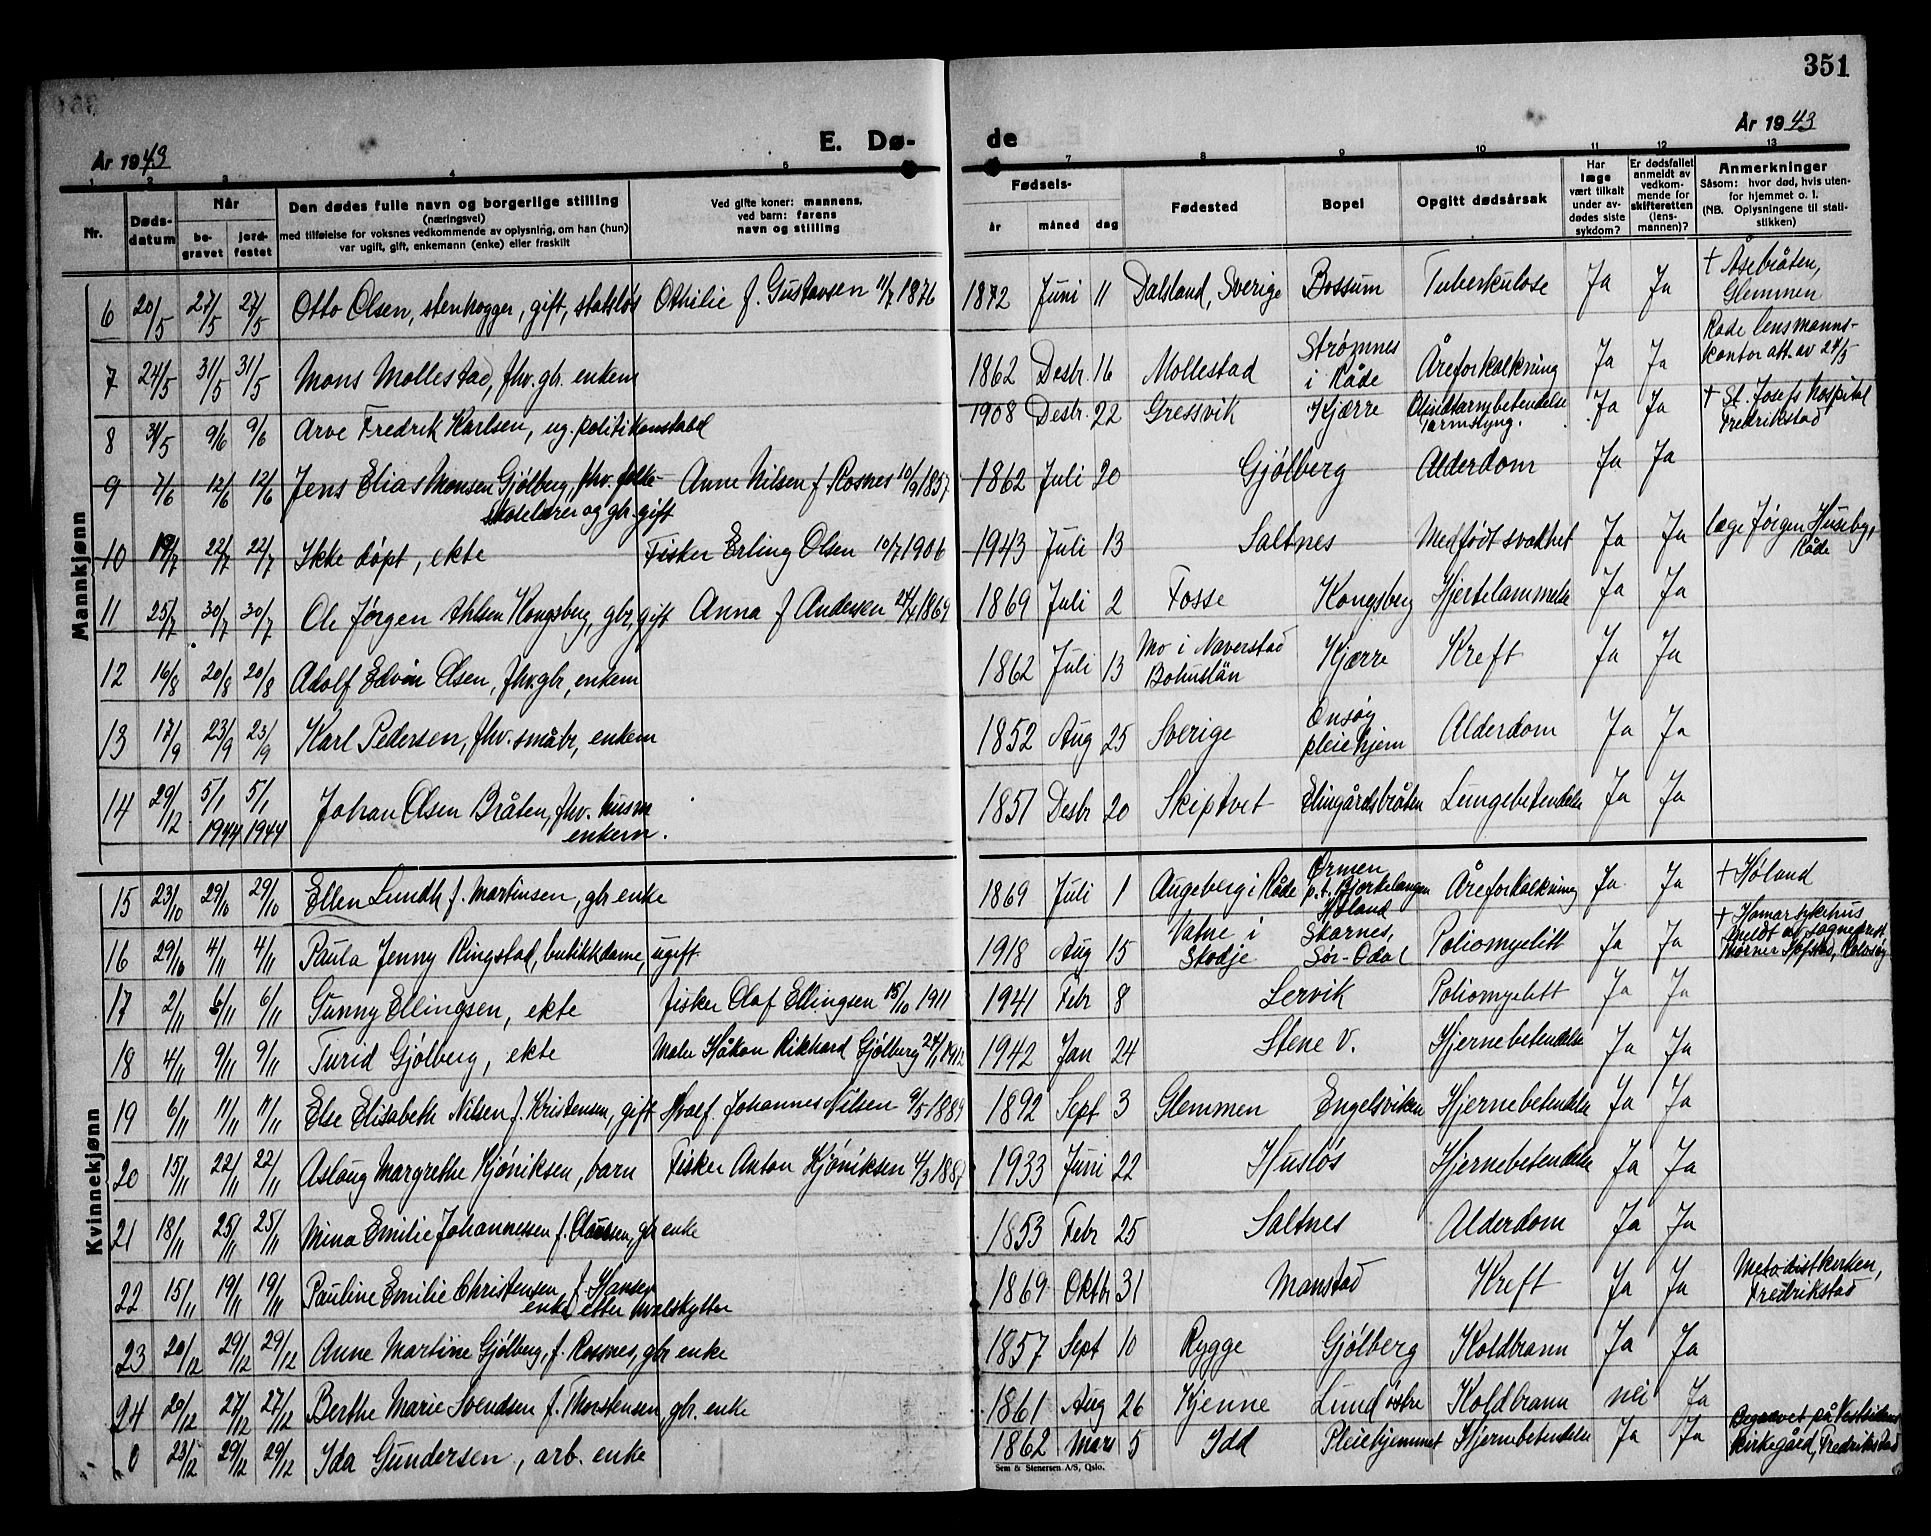 351
År 1943
E. Dø-
de
År 1943
1 2 3 4 5 7 8 9 10 11 12 13
Nr.
Døds-
datum
Når
be-
gravet
jord-
festet
Den dødes fulle navn og borgerlige stilling
(næringsvei)
med tilføielse for voksnes vedkommende av oplysning, om han (hun)
var ugift, gift, enkemann (enke) eller fraskilt
Ved gifte koner: mannens,
ved barn: farens
navn og stilling
Fødsels-
år måned dag
Fødested
Bopel
Opgitt dødsårsak
Har
læge
vært tilkalt
under av-
dødes siste
sykdom?
Er dødsfallet
anmeldt av
vedkom-
mende for
skifteretten
(lens-
mannen)?
Anmerkninger
Såsom: hvor død, hvis uten-
for hjemmet o. l.
(NB. Oplysningene til stati-
stikken)
Mannkjønn
6 20/5 27/5 27/5 Otto Olsen, stenhogger, gift, statsløs Othilie f. Gustavsen 11/7 1876 1872 Juni 11 Dalsland, Sverige Bossum Tuberkulose Ja Ja † Åsebråten,
Glemmen
7 24/5 31/5 31/5 Mons Mollestad, fhv. gbr. enkem 1862 Desbr. 16 Mollestad Strømnes
i Råde Åreforkalkning Ja Ja Råde lensmanns-
kontor att. av 27/5
8 31/5 9/6 9/6 Arve Fredrik Karlsen, ug. politikonstabel 1908 Desbr. 22 Gressvik Kjærre Blindtarmbetendelse
Tarmslyng. Ja Ja † St. Josefs Hospital
Fredrikstad
9 7/6 12/6 12/6 Jens Elias Monsen Gjølberg, fhv. folke-
skolelærer og gbr. gift Anne Nilsen f. Rosnes 10/9 1857 1862 Juli 20 Gjølberg Alderdom Ja Ja
10 19/7 22/7 22/7 Ikke døpt, ekte Fisker Erling Olsen 10/7 1906 1943 Juli 13 Saltnes Medfødt svakhet Ja Ja læge Jørgen Huseby,
Råde
11 25/7 30/7 30/7 Ole Jørgen Kongsberg, gbr, gift Anna f Andersen 1869 1869 Juli 2 Fosse Kongsberg Hjertelammelse Ja Ja
12 16/8 20/8 20/8 Adolf Edvin Olsen, fhv. gbr, enkem 1862 Juli 13 Mo i Naverstad
Bohuslän Kjærre Kreft Ja Ja
13 17/9 23/9 23/9 Karl Pedersen, fhv. småbr, enkem 1852 Aug 25 Sverige Onsøy
pleiehjem Alderdom Ja Ja
14 29/12 5/1
1944 5/1
1944 Johan Olsen Bråten, fhv. husm
enkem. 1851 Desbr 20 Skiptvet Elingårdsbråten Lungebetendelse Ja Ja
Kvinnekjønn
15 23/10 29/10 29/10 Ellen Lundh f. Martinsen, gbr enke 1869 Juli 1 Augeberg i Råde Ørmen
p.t. Bjørkelangen
Høland Åreforkalkning Ja Ja † Høland
16 29/10 4/11 4/11 Paula Jenny Ringstad, butikkdame, ugift 1918 Aug 15 Vatne i
Skodje Skarnes,
Sør-Odal Poliomyelitt Ja Ja † Hamar sykehus
meldt av sogneprest
17 2/11 6/11 6/11 Gunny Ellingsen, ekte fisker Olaf Ellingsen 15/10 1911 1941 Febr 8 Lervik Poliomyelitt Ja Ja
18 4/11 9/11 9/11 Turid Gjølberg, ekte Maler Håkon Rikhard Gjølberg 1912 1942 Jan 24 Stene V. Hjernebetendelse Ja Ja
19 6/11 11/11 11/11 Else Elisabeth Nilsen f. Kristensen, gift Hvalf. Johannes Nilsen 9/5 1889 1892 Sept 3 Glemmen Engelsviken Hjernebetendelse Ja Ja
20 15/11 22/11 22/11 Aslaug Margrethe Kjøniksen, barn Fisker Anton Kjøniksen 4/3 1887 1933 Juni 22 Husløs Hjernebetendelse Ja Ja
21 18/11 25/11 25/11 Mina Emilie Johannessen f. Clausen, gbr enke 1853 Febr 25 Saltnes Alderdom Ja Ja
22 15/11 19/11 19/11 Pauline Emilie Christensen f. Hansen
enke etter hvalskytter 1869 Oktbr 31 Manstad Kreft Ja Ja Metodistkirken,
Fredrikstad
23 20/12 29/12 29/12 Anne Martine Gjølberg, f. Rossnes, gbr enke 1857 Sept 10 Rygge Gjølberg Koldbrann Ja Ja
24 20/12 27/12 27/12 Berthe Marie Svendsen f. Thorstensen, gbr. enke 1861 Aug 26 Kjenne Lund østre Koldbrann nei Ja
0 23/12 29/12 29/12 Ida Gundersen, arb. enke 1862 Mars 5 Idd Pleiehjemmet Hjernebetendelse Ja Ja Begravet på Vestsidens
kirkegård, Fredrikstad
Sem & Stenersen A/S, Oslo.